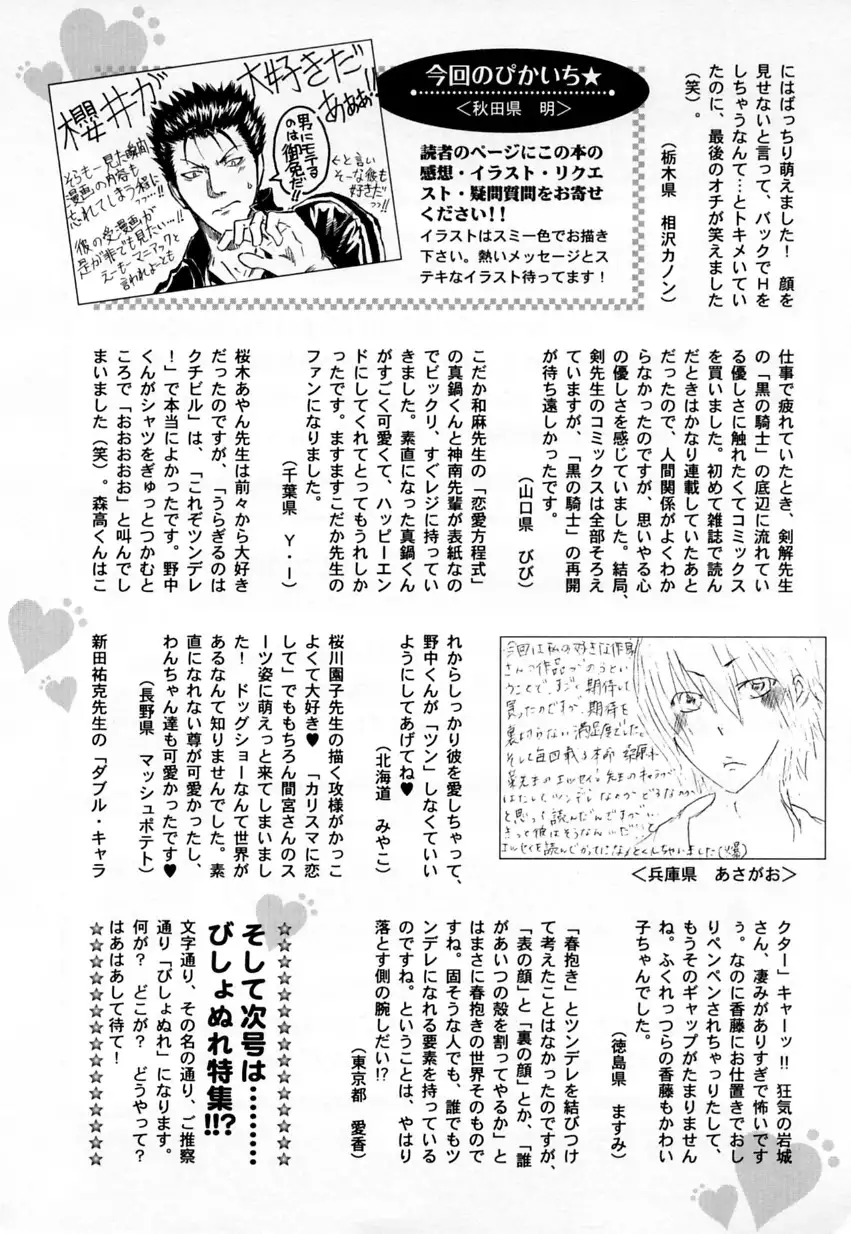 にはばっちり萌えました！　顔を
見せないと言って、バックでＨを
しちゃうなんて…とトキメいてい
たのに、最後のオチが笑えました
（笑）。
（栃木県　相沢カノン）
今回のぴかいち★
＜秋田県　明＞
読者のページにこの本の
感想・イラスト・リクエ
スト・疑問質問をお寄せ
ください！！
イラストはスミ一色でお描き
下さい。熱いメッセージとス
テキなイラスト待ってます！
櫻井が
大好きだ
あああ!!
男にモテる
のは御免だ!!
←と言い
そーな彼も
好きだ
っっ!!
そらもー見た瞬間
漫画の内容も
忘れてしまう程に
…っっ…!!
彼の受漫画が
是が非でも見たい…!!
えーもーマニアックと
言われよーとも
仕事で疲れていたとき、剣解先生
の「黒の騎士」の底辺に流れてい
る優しさに触れたくてコミックス
を買いました。初めて雑誌で読ん
だときはかなり連載していたあと
だったので、人間関係がよくわか
らなかったのですが、思いやる心
の優しさを感じていました。結局、
剣先生のコミックスは全部そろえ
ていますが、「黒の騎士」の再開
が待ち遠しかったです。
（山口県　びび）
こだか和麻先生の「恋愛方程式」
の真鍋くんと神南先輩が表紙なの
でビックリ、すぐレジに持ってい
きました。素直になった真鍋くん
がすごく可愛くて、ハッピーエン
ドにしてくれてとってもうれしか
ったです。ますますこだか先生の
ファンになりました。
（千葉県　Ｙ・Ｉ）
桜木あやん先生は前々から大好き
だったのですが、「うらぎるのは
クチビル」は、「これぞツンデレ
！」で本当によかったです。野中
くんがシャツをぎゅっとつかむと
ころで「おおおおお」と叫んでし
まいました（笑）。森高くんはこ
今回は私の好きな作家
さんの作品がのるとい
うことで、すごく期待して
買ったのですが、期待を
裏切らない満足度でした。
そして毎回載る本命
先生のエッセイ。先生のキャラが
はたしてツンデレなのかどうなのか
と思って読んだんですが
きっと彼はそうなんだと
エッセイを読んでかってになっとくしちゃいました(爆)
＜兵庫県　あさがお＞
れからしっかり彼を愛しちゃって、
野中くんが「ツン」しなくていい
ようにしてあげてね♥
（北海道　みやこ）
桜川園子先生の描く攻様がかっこ
よくて大好き♥　「カリスマに恋
して」でももちろん間宮さんのス
ーツ姿に萌えっと来てしまいまし
た！　ドッグショーなんて世界が
あるなんて知りませんでした。素
直になれない尊が可愛かったし、
わんちゃん達も可愛かったです♥
（長野県　マッシュポテト）
新田祐克先生の「ダブル・キャラ
クター」キャーッ!!　狂気の岩城
さん、凄みがありすぎで怖いです
ぅ。なのに香藤にお仕置きでおし
りペンペンされちゃったりして、
もうそのギャップがたまりません
ね。ふくれっつらの香藤もかわい
子ちゃんでした。
（徳島県　ますみ）
「春抱き」とツンデレを結びつけ
て考えたことはなかったのですが、
「表の顔」と「裏の顔」とか、「誰
があいつの殻を割ってやるか」と
はまさに春抱きの世界そのもので
すね。固そうな人でも、誰でもツ
ンデレになれる要素を持っている
のですね。ということは、やはり
落とす側の腕しだい!?
（東京都　愛香）
☆☆☆☆☆☆☆☆☆☆☆☆☆☆☆
そして次号は………
びしょぬれ特集!!?
文字通り、その名の通り、ご推察
通り「びしょぬれ」になります。
何が？　どこが？　どうやって？
はあはあして待て！
☆☆☆☆☆☆☆☆☆☆☆☆☆☆☆